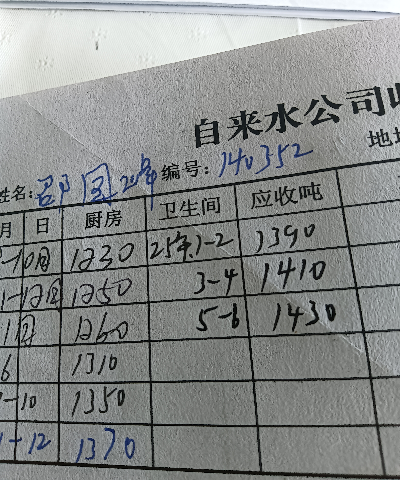 自来水公司收
姓名: 邵国峰 编号: 140352 地址
月 日 厨房 卫生间 应收吨
-10月 1230 25年1-2 1390
1-12月 1250 3-4 1410
1月 1260 5-6 1430
6 1310
-10 1350
1-12 1370